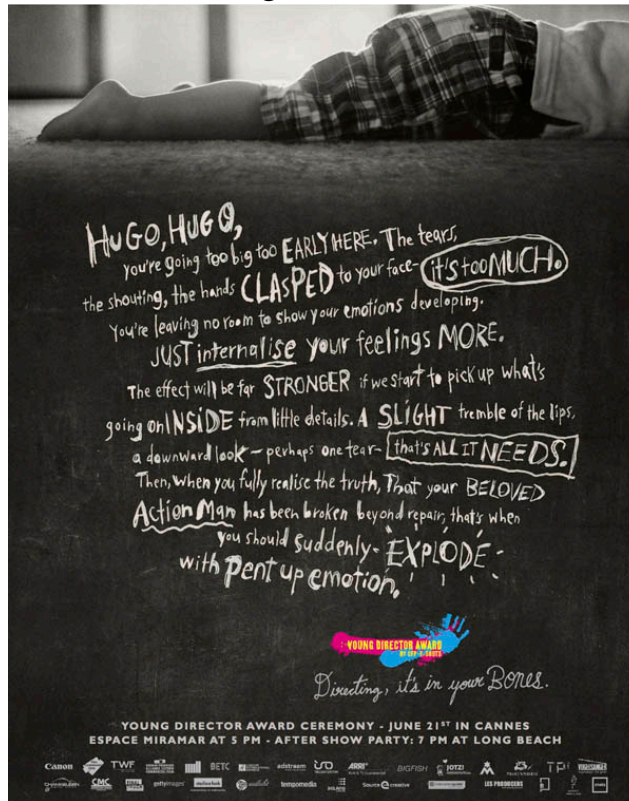 HUGO, HUGO,
you're going too big too EARLY HERE. The tears,
the shouting, the hands CLASPED to your face- it's too MUCH.
You're leaving no room to show your emotions developing.
JUST internalise your feelings MORE.
The effect will be far STRONGER if we start to pick up what's
going on INSIDE from little details. A SLIGHT tremble of the lips,
a downward look - perhaps one tear- that's ALL IT NEEDS.
Then, when you fully realise the truth, That your BELOVED
Action Man has been broken beyond repair, that's when
you should suddenly- EXPLODE-
with pent up emotion.
YOUNG DIRECTOR AWARD
BY CFP-E/SHOTS
Directing, it's in your BONES.
YOUNG DIRECTOR AWARD CEREMONY - JUNE 21ST IN CANNES
ESPACE MIRAMAR AT 5 PM - AFTER SHOW PARTY: 7 PM AT LONG BEACH
Canon TWF BETC adstream ARRI BIGFISH JOTZI TPi
CMC gettyimages tempomedia Source creative LES PRODUCERS